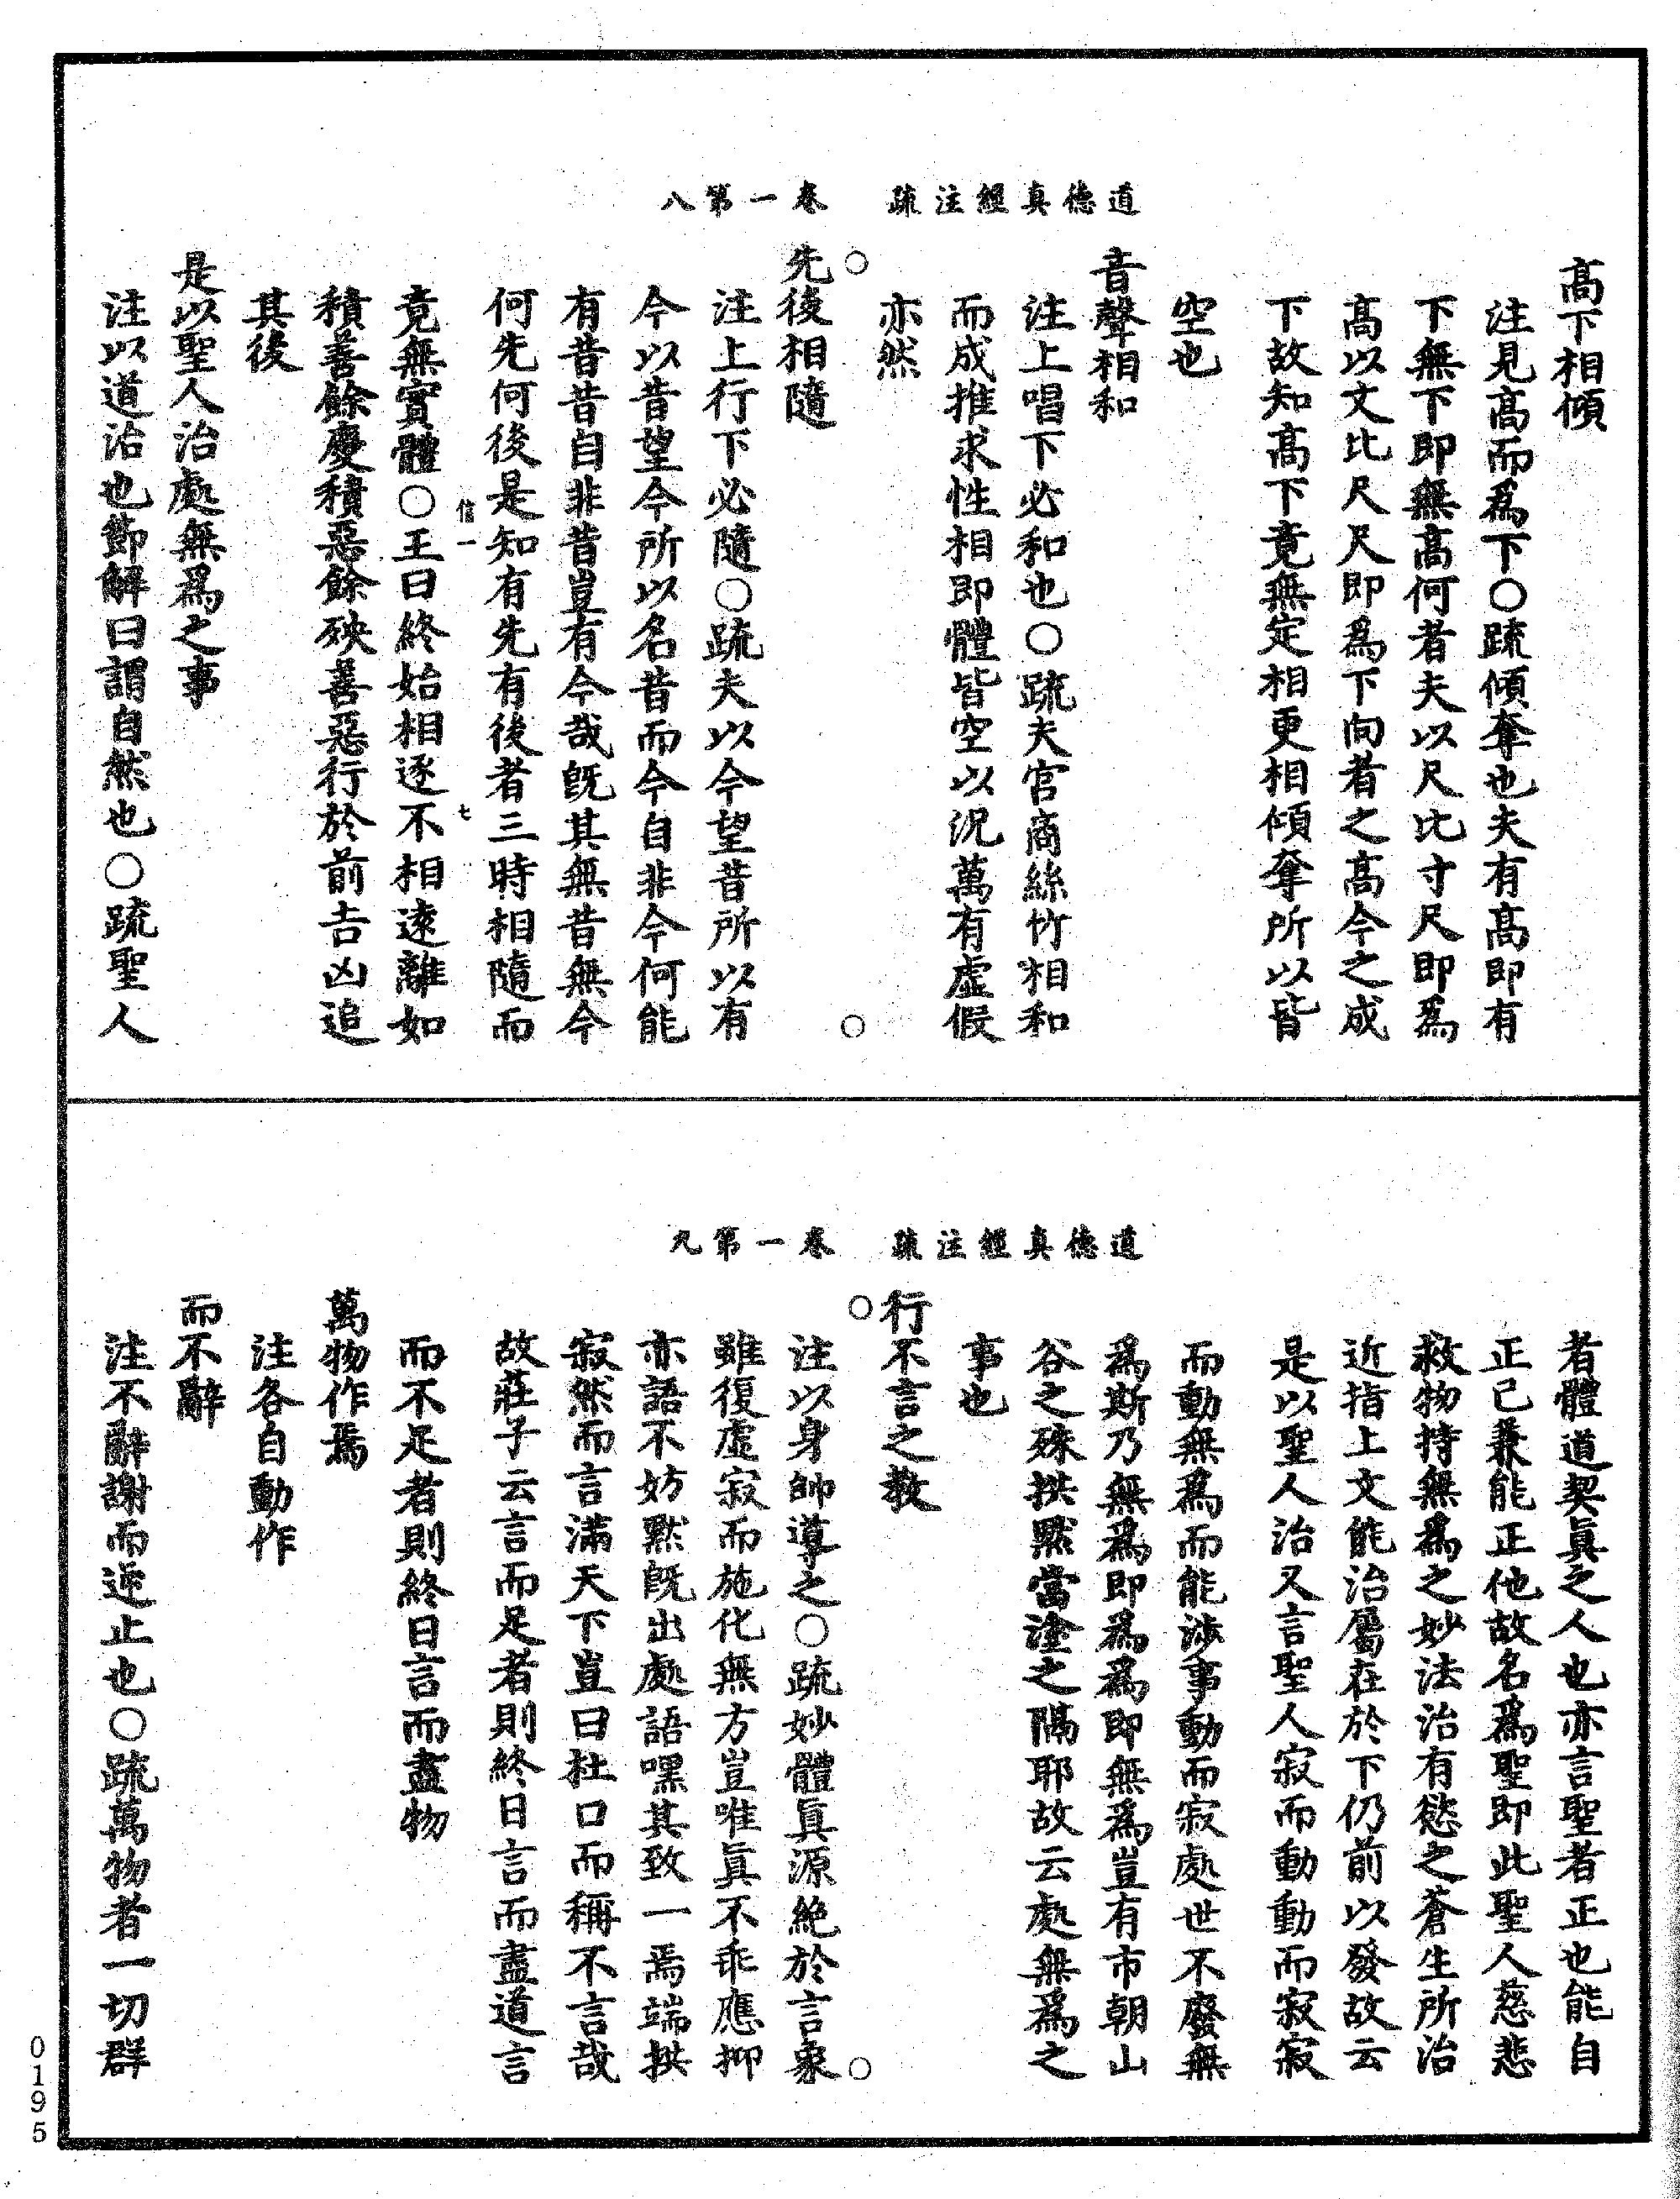 道德真經注疏　卷一第八
高下相傾
注見高而爲下○疏傾奪也夫有高即有
下無下即無高何者夫以尺比寸尺即爲
高以文比尺尺即爲下向者之高今之成
下故知高下竟無定相更相傾奪所以皆
空也
音聲相和
注上唱下必和也○疏夫宮商絲竹相和
而成推求性相即體皆空以況萬有虛假
亦然
先後相隨
注上行下必隨○疏夫以今望昔所以有
今以昔望今所以名昔而今自非今何能
有昔昔自非昔豈有今哉旣其無昔無今
何先何後是知有先有後者三時相隨而
信一　七
竟無實體○王曰終始相逐不相遠離如
積善餘慶積惡餘殃善惡行於前吉凶追
其後
是以聖人治處無爲之事
注以道治也節解曰謂自然也○疏聖人
道德真經注疏　卷一第九
者體道契眞之人也亦言聖者正也能自
正己兼能正他故名爲聖即此聖人慈悲
救物持無爲之妙法治有慾之蒼生所治
近指上文能治屬在於下仍前以發故云
是以聖人治又言聖人寂而動動而寂寂
而動無爲而能涉事動而寂處世不廢無
爲斯乃無爲即爲爲即無爲豈有市朝山
谷之殊拱默當塗之隔耶故云處無爲之
事也
行不言之教
注以身帥導之○疏妙體眞源絶於言象
雖復虛寂而施化無方豈唯眞不乖應抑
亦語不妨默旣出處語嘿其致一焉端拱
寂然而言滿天下豈曰杜口而稱不言哉
故莊子云言而足者則終日言而盡道言
而不足者則終日言而盡物
萬物作焉
注各自動作
而不辭
注不辭謝而逆止也○疏萬物者一切群
0195